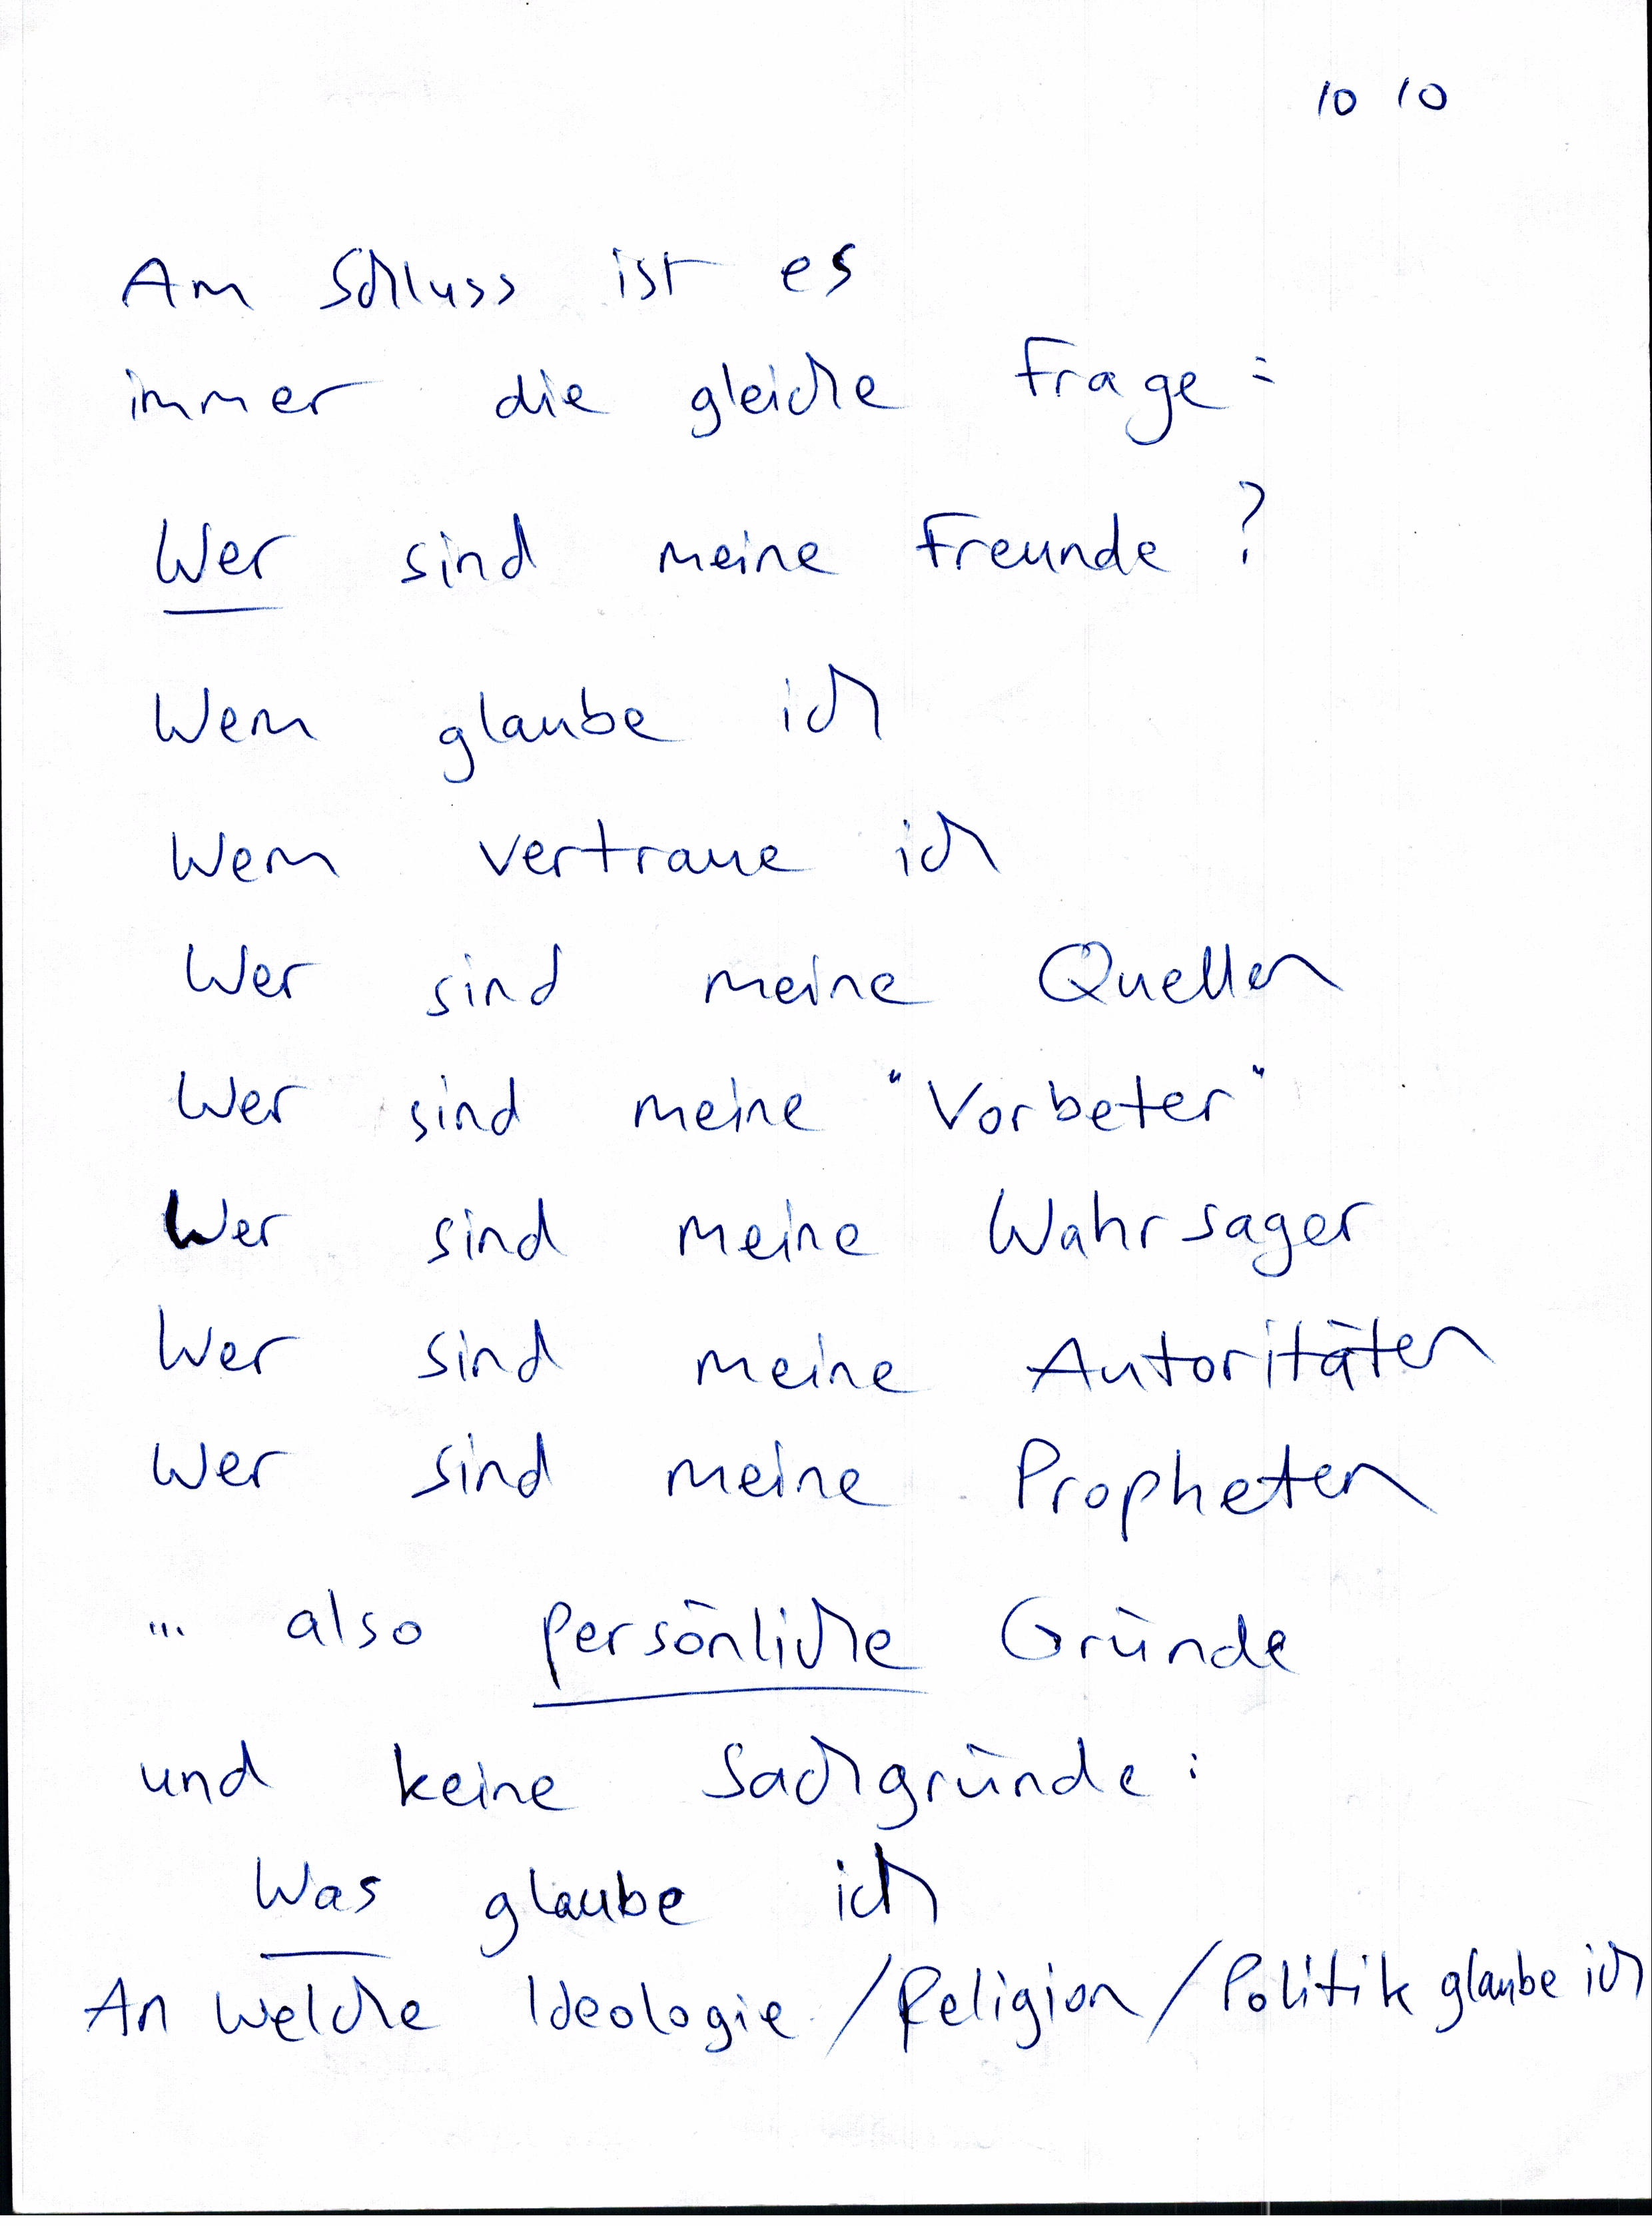 10 10
Am Schluss ist es
immer die gleiche Frage:
Wer sind meine Freunde?
Wem glaube ich
Wem vertraue ich
Wer sind meine Quellen
Wer sind meine "Vorbeter"
Wer sind meine Wahrsager
Wer sind meine Autoritäten
Wer sind meine Propheten
... also persönliche Gründe
und keine Sachgründe:
Was glaube ich
An welche Ideologie/Religion/Politik glaube ich